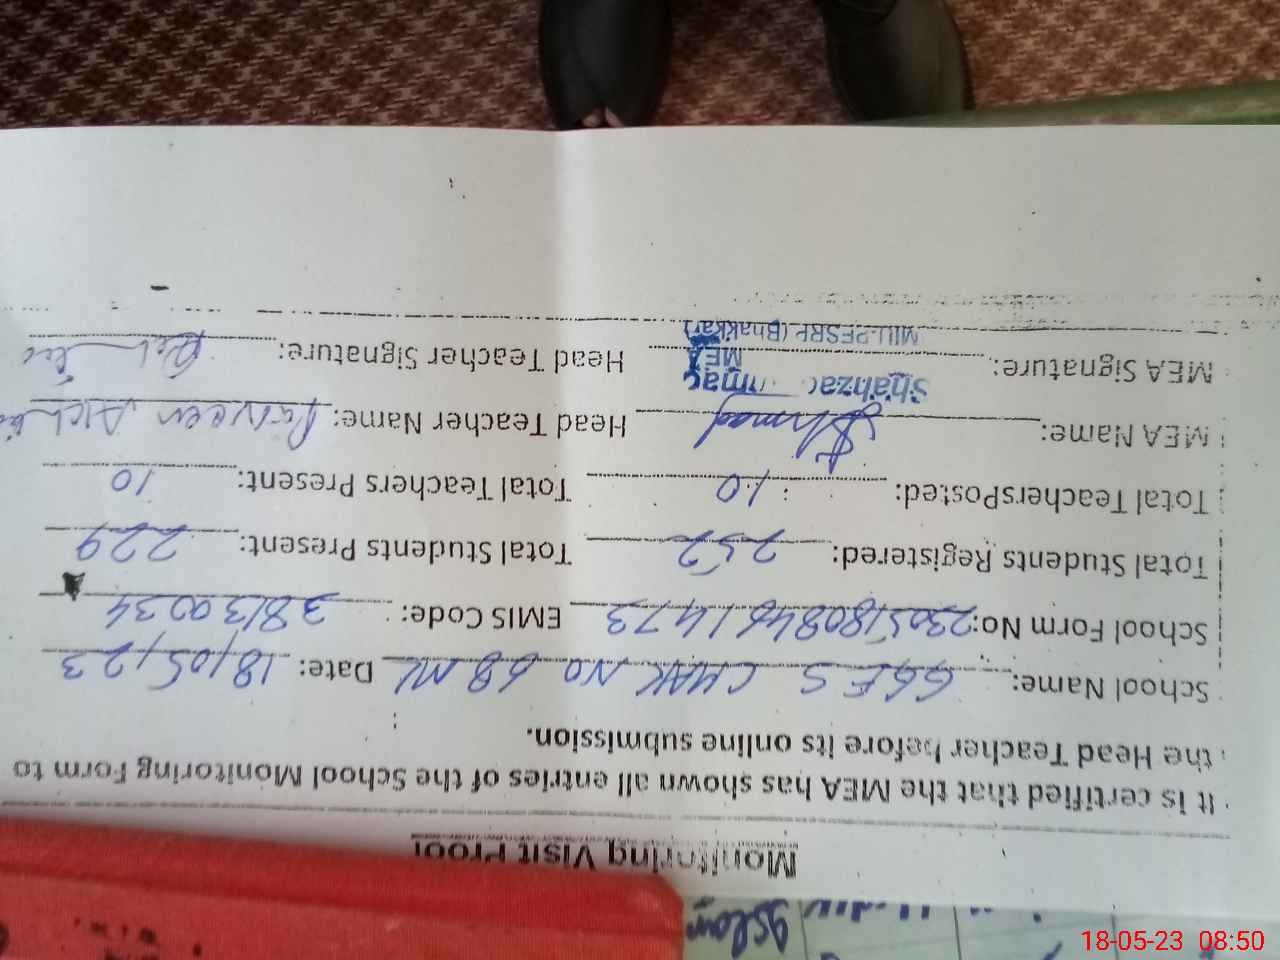 Monitoring Visit Proof
It is certified that the MEA has shown all entries of the School Monitoring Form to
the Head Teacher before its online submission.
School Name: GGES CHAK NO 68 ML Date: 18/05/23
School Form No: 23051808461473 EMIS Code: 38130034
Total Students Registered: 252 Total Students Present: 229
Total TeachersPosted: 10 Total Teachers Present: 10
MEA Name: Ahmad Head Teacher Name: Parveen
MEA Signature: Head Teacher Signature:
MEA
MIU-PESRP (Bhakkar)
18-05-23 08:50